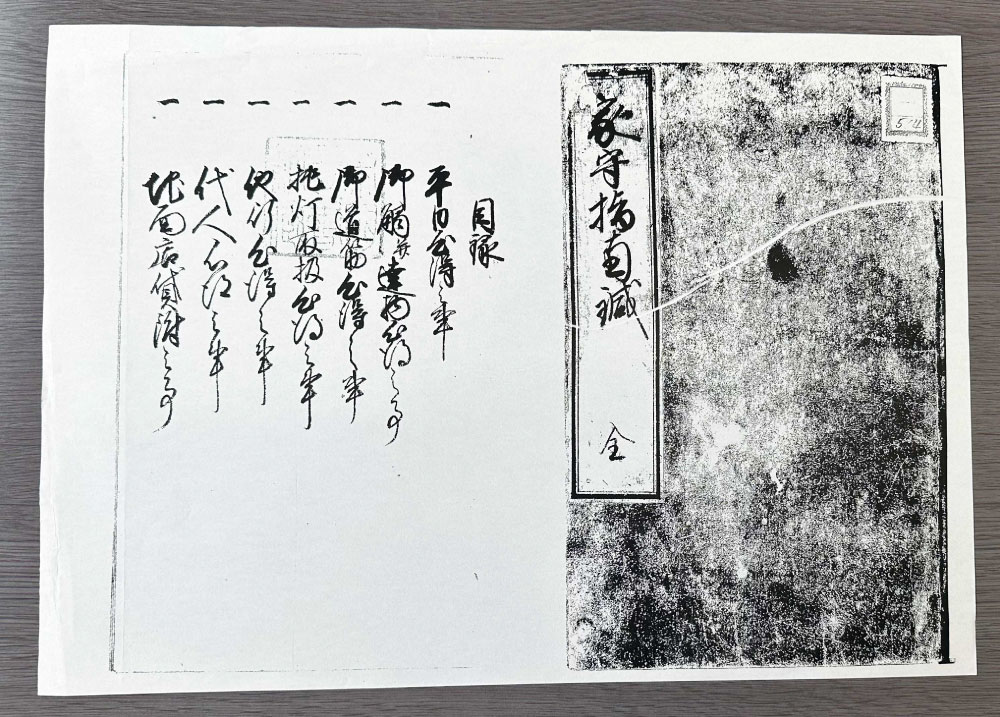 家守指南鍼
全
目録
一 平日心得之事
一 御觸并達物心得之事
一 御道筋心得之事
一 挑灯取扱心得之事
一 他行心得之事
一 代人心得之事
一 地面店貸附之事